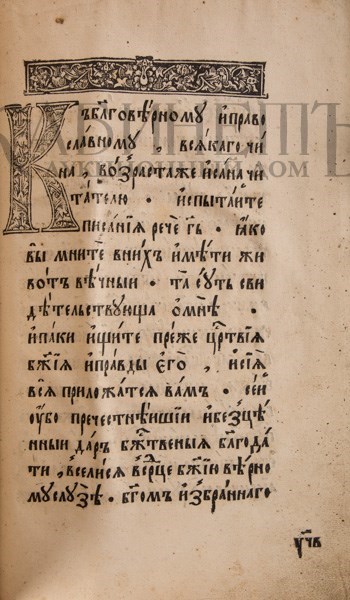 КЪ БЛ҃ГОВѢ́РНОМУ И҆ПРАВО
СЛА́ВНОМУ , ВСЯ́КАГО , ЧИ́
НА , ВО́ЗРАСТАЖЕ И҆СА́НА ЧИ
ТА́ТЕЛЮ · И҆СПЫТА́ИТЕ
ПИСА́НІЯ РЕЧЀ ГЬ҃ · Ꙗ҆́КО
ВЫ̀ МНИТЕ ВНИ́ХЪ И҆МѢ́ТИ ЖИ
ВО́ТЪ ВѢ́ЧНЫИ · ТА̀ СУ́ТЬ СВИ
ДѢ́ТЕЛЬСТВУЮЩА Ѡ҆МНѢ̀ ·
И҆ПА́КИ И҆ЩИ́ТЕ ПРЕ́ЖЕ ЦР҃ТВІЯ
БЖ҃ІЯ И҆ПРА́ВДЫ Є҆ГО̀ , И҆СІЯ̀
ВСЯ̀ ПРИЛО́ЖАТСЯ ВА́МЪ · СЕ́И
ОУ҆́БО ПРЕЧЕСТНѢ́ИШІИ И҆БЕЗЦѢ́
ННЫИ ДА́РЪ БЖ҃ТВЕНЫЯ БЛ҃ГОДА́
ТИ , ВСЕЛИ́СЯ ВСЕ́РЦЕ БЖ҃ІЮ ВѢ́РНО
МУ СЛУЗѢ̀ · БГ҃ОМЪ И҆ЗБРА́ННАГО
КАБИНЕТЪ
АУКЦИОННЫЙ ДОМ